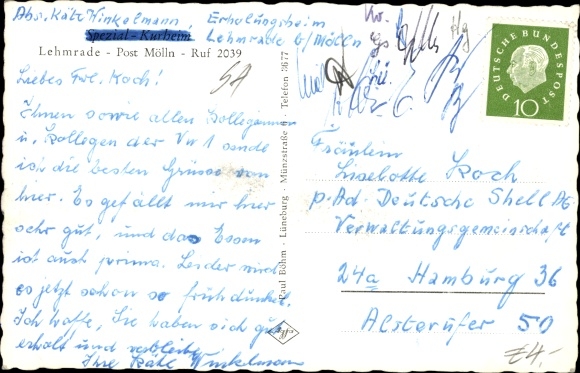 Abs. Käte Winkelmann, Erholungsheim
Spezial-Kurheim Lehmrade b/Mölln
Lehmrade - Post Mölln - Ruf 2039
Liebes Frl. Koch!
Ihnen sowie allen Kolleginnen
u. Kollegen der Vw 1 sende
ich die besten Grüsse von
hier. Es gefällt mir hier
sehr gut, und das Essen
ist auch prima. Leider wird
es jetzt schon so früh dunkel.
Ich hoffe, Sie haben sich gut
erholt und verbleibe
Ihre Käte Winkelmann
Paul Böhm - Lüneburg - Münzstraße - Telefon 3677
DEUTSCHE BUNDESPOST
10
Fräulein
Liselotte Koch
p. Ad. Deutsche Shell AG
Verwaltungsgemeinschaft
24a Hamburg 36
Alsterufer 50
£4,-